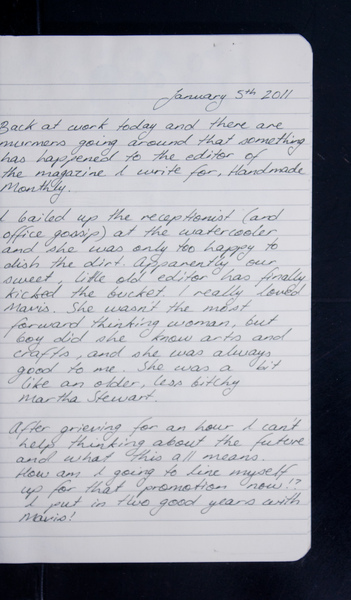 January 5th 2011
Back at work today and there are
murmers going around that something
has happened to the editor of
the magazine I write for, Handmade
Monthly.
I bailed up the receptionist (and
office gossip) at the watercooler
and she was only too happy to
dish the dirt. Apparently our
sweet, little old editor has finally
kicked the bucket. I really loved
Mavis. She wasn't the most
forward thinking woman, but
boy did she know arts and
crafts, and she was always
good to me. She was a bit
like an older, less bitchy
Martha Stewart.
After grieving for an hour I can't
help thinking about the future
and what this all means.
How am I going to line myself
up for that promotion now!?
I put in two good years with
Mavis!